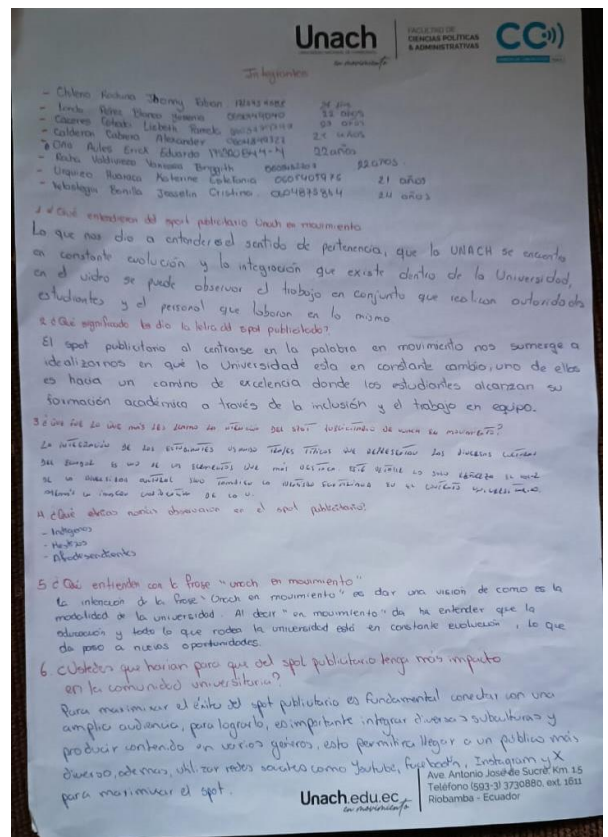 Unach
en movimiento
FACULTAD DE
CIENCIAS POLÍTICAS
& ADMINISTRATIVAS
CC
Integrantes
- Jhonny
22 años
- Calderón Alexander 24 años
Erick Eduardo 22 años
- 22 años
- Katerine Estefania 0605409976 21 años
- Bonilla Josselin Cristina 24 años
1 ¿Qué entendieron del spot publicitario Unach en movimiento
Lo que nos dio a entender es el sentido de pertenencia, que la UNACH se encuentra
en constante evolución y la integración que existe dentro de la Universidad,
en el video se puede observar el trabajo en conjunto que realizan autoridades
estudiantes y el personal que laboran en la misma.
2 ¿Qué significado les dio la letra del spot publicitado?
El spot publicitario al centrarse en la palabra en movimiento nos sumerge a
idealizarnos en qué la Universidad esta en constante cambio, uno de ellos
es hacia un camino de excelencia donde los estudiantes alcanzan su
formación académica a través de la inclusión y el trabajo en equipo.
3 ¿Que fue lo que más les llamo la atención del spot publicitario de unach en movimiento?
La integración de los estudiantes usando trajes típicos que representan las diversas culturas
del es uno de los elementos que más
la diversidad cultural sino también la
la imagen de la U.
4 ¿Qué etnias observaron en el spot publicitario?
- Indígenas
- Mestizos
- Afrodescendientes
5 ¿Qué entienden con la frase "unach en movimiento"
La intención de la frase "Unach en movimiento" es dar una visión de como es la
modalidad de la universidad. Al decir "en movimiento" da ha entender que la
educación y todo lo que rodea la universidad está en constante evolución, lo que
da paso a nuevas oportunidades.
6. ¿Ustedes que harian para que del spot publicitario tenga más impacto
en la comunidad universitaria?
Para maximizar el éxito del spot publicitario es fundamental conectar con una
amplia audiencia, para lograrlo, es importante integrar diversas subculturas y
producir contenido en varios géneros, esto permitira llegar a un público más
diverso, ademas, utilizar redes sociales como Youtube, Instagram y X
para maximizar el spot.
Unach.edu.ec
en movimiento
Ave. Antonio José de Sucre, Km. 1.5
Teléfono (593-3) 3730880, ext. 1611
Riobamba - Ecuador